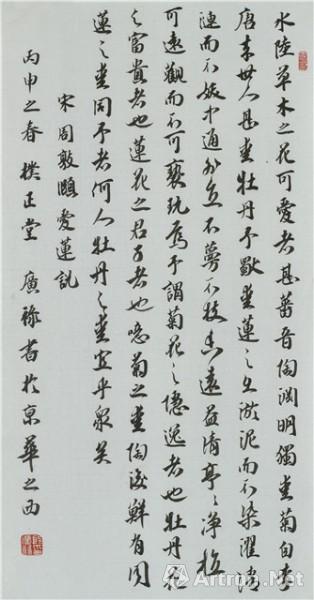 水陸草木之花可愛者甚蕃晉陶淵明獨愛菊自李
唐來世人甚愛牡丹予獨愛蓮之出淤泥而不染濯清
漣而不妖中通外直不蔓不枝香遠益清亭亭淨植
可遠觀而不可褻玩焉予謂菊花之隱逸者也牡丹花
之富貴者也蓮花之君子者也噫菊之愛陶後鮮有聞
蓮之愛同予者何人牡丹之愛宜乎眾矣
宋周敦頤愛蓮說
丙申之春 樸正堂 廣祿書於京華之西
Artron.Net